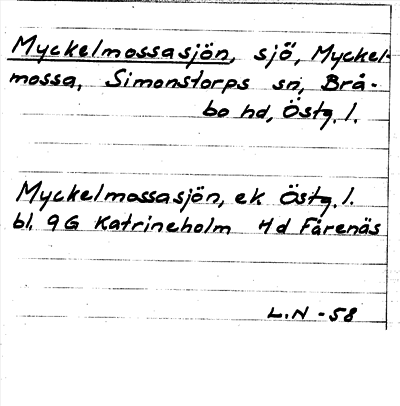 Myckelmossasjön, sjö, Myckel-
mossa, Simonstorps sn, Brå-
bo hd, Östg. l.
Myckelmossasjön, ek Östg. l.
bl. 9G Katrineholm Hd Fårenäs
L.N -58